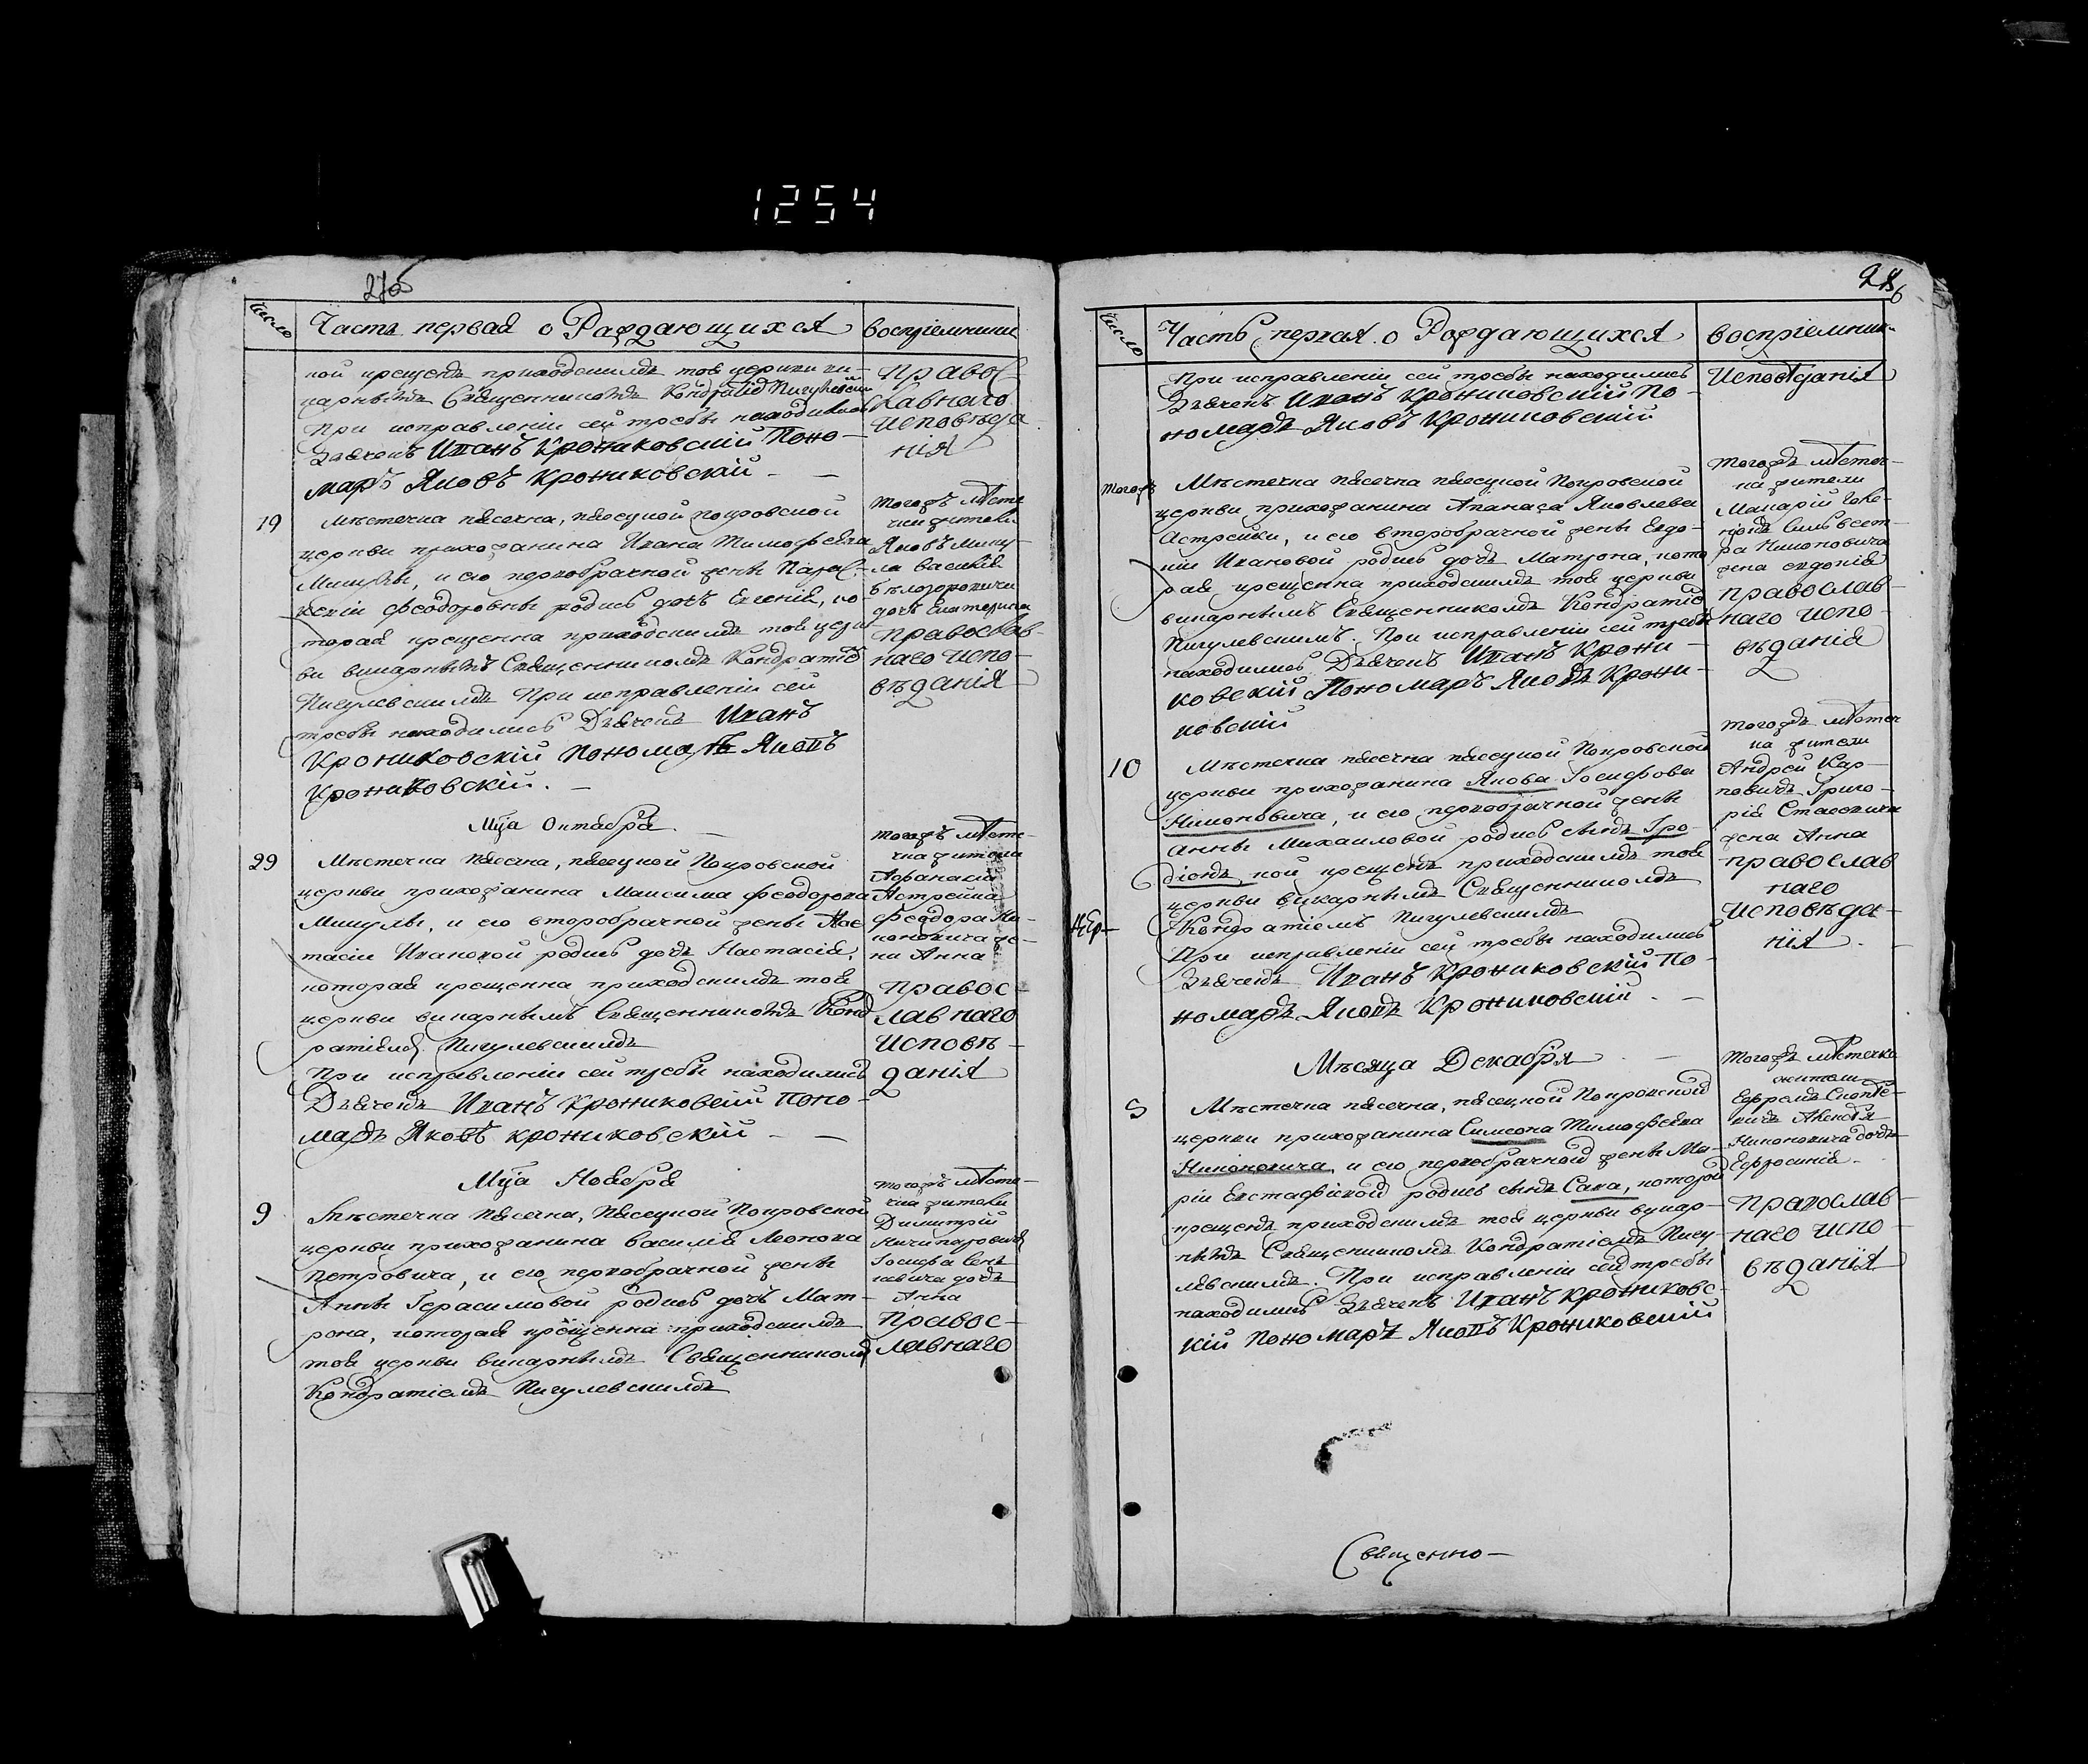 1254
276
Число
Часть первая о Раждающихся
воспріемники
кой крещенъ приходскимъ тоя церкви ви-
карнымъ Священникомъ Кондратіемъ Пигулевским
При исправленіи сей требы находились
Дьячекъ Иванъ Крониковскій Поно-
марь Яковъ Крониковскій
Правос
лавнаго
исповѣда
нія
19
Мѣстечка пясечна, пясецкой покровской
церкви прихожанина Ивана Тимофѣева
Микулы, и его первобрачной жены Парас-
кевіи Феодоровны родись дочь Евгенія, ко-
торая крещенна приходскимъ тоя церк
ви викарнымъ Священникомъ Кондратіе
Пигулевскимъ При исправленіи сей
требы находились Дьячекъ Иванъ
Крониковскій Пономарь Яковъ
Крониковскій.
тогожъ мѣсте
чка жители
Яковъ Мику-
ла Василія
дочь Екатерина
Православ-
наго испо-
вѣданія
Мца Октября
29
Мѣстечка Пясечна, пясецкой Покровской
церкви прихожанина Максима Феодорова
Микулы, и его второбрачной жены Нас
тасіи Ивановой родись дочь Настасія,
которая крещенна приходскимъ тоя
церкви викарнымъ Священникомъ Конд
ратіемъ Пигулевскимъ
При исправленіи сей требы находились
Дьячекъ Иванъ Крониковскій Поно-
марь Яковъ Крониковскій
тогожъ мѣсте-
чка жители
Афанасій
Астрейка
Феодора Ни-
коновича же-
на Анна
Правос-
лавнаго
исповѣ-
данія
Мца Ноября
9
Мѣстечка Пясечна, Пясецкой Покровской
церкви прихожанина Василія Леонова
Петровича, и его первобрачной жены
Анны Герасимовой родись дочь Мат-
рона, которая крещенна приходскимъ
тоя церкви викарнымъ Священникомъ
Кондратіемъ Пигулевскимъ
тогожъ мѣсте-
чка жители
Димитрій
Ничипоровичъ
Іосифа
дочь
Анна
Правос-
лавнаго
Число
Часть первая о Раждающихся
воспріемник
При исправленіи сей требы находились
Дьячекъ Иванъ Крониковскій По-
номарь Яковъ Крониковскій
Исповѣданія
Тогожъ
Мѣстечка пясечна пясецкой Покровской
церкви прихожанина Апанаса Яковлева
Астрейки, и его второбрачной жены Евдо-
кіи Ивановой родись дочь Матрона, кото
рая крещенна приходскимъ тоя церкви
викарнымъ Священникомъ Кондратіе
Пигулевскимъ. При исправленіи сей требы
находились Дьячекъ Иванъ Крони-
ковскій Пономарь Яковъ Крони-
ковскій
тогожъ мѣстеч-
ка жители
Макарій
Сильвест-
ра Никоновича
жена евдокія
православ-
наго испо-
вѣданія
10
Мѣстечка пясечна пясецкой Покровской
церкви прихожанина Якова Іосифова
Никоновича, и его первобрачной жены
Анны Михаиловой родись сынъ Іро-
діонъ, кой крещенъ приходскимъ тоя
церкви викарнымъ Священникомъ
Кондратіемъ Пигулевскимъ
При исправленіи сей требы находились
Дьячекъ Иванъ Крониковскій По-
номарь Яковъ Крониковскій
тогожъ мѣстеч
ка жители
Андрей Кар-
повичъ Григо-
рія Стасевича
жена Анна
православ
наго
исповѣда-
нія
Мѣсяца Декабря
5
Мѣстечка пясечна, пясецкой Покровской
церкви прихожанина Симеона Тимофѣева
Никоновича, и его первобрачной жены Ма-
ріи Евстафіевой родись сынъ Сава, которой
крещенъ приходскимъ тоя церкви викар-
нымъ Священникомъ Кондратіемъ Пигу-
левскимъ. При исправленіи сей требы
находились Дьячекъ Иванъ Крониковс-
кій Пономарь Яковъ Крониковскій
Тогожъ мѣстечка
жители
Никоновича дочь
Ефросинія
Православ-
наго испо-
вѣданія
Священно-